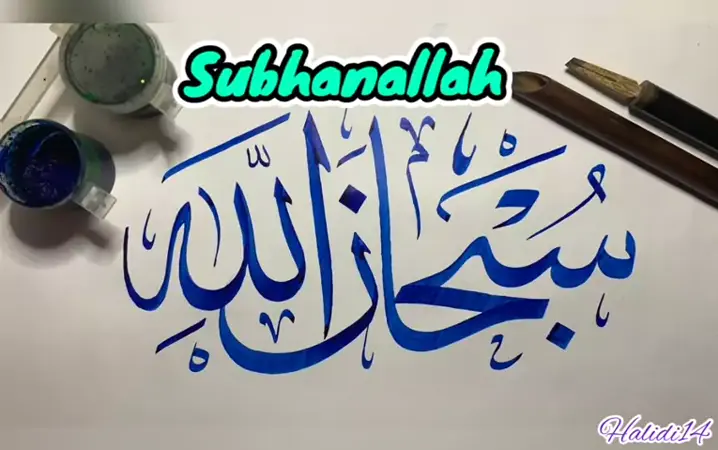 Subhanallah
سُبْحَانَ اللَّهِ
Halidi14